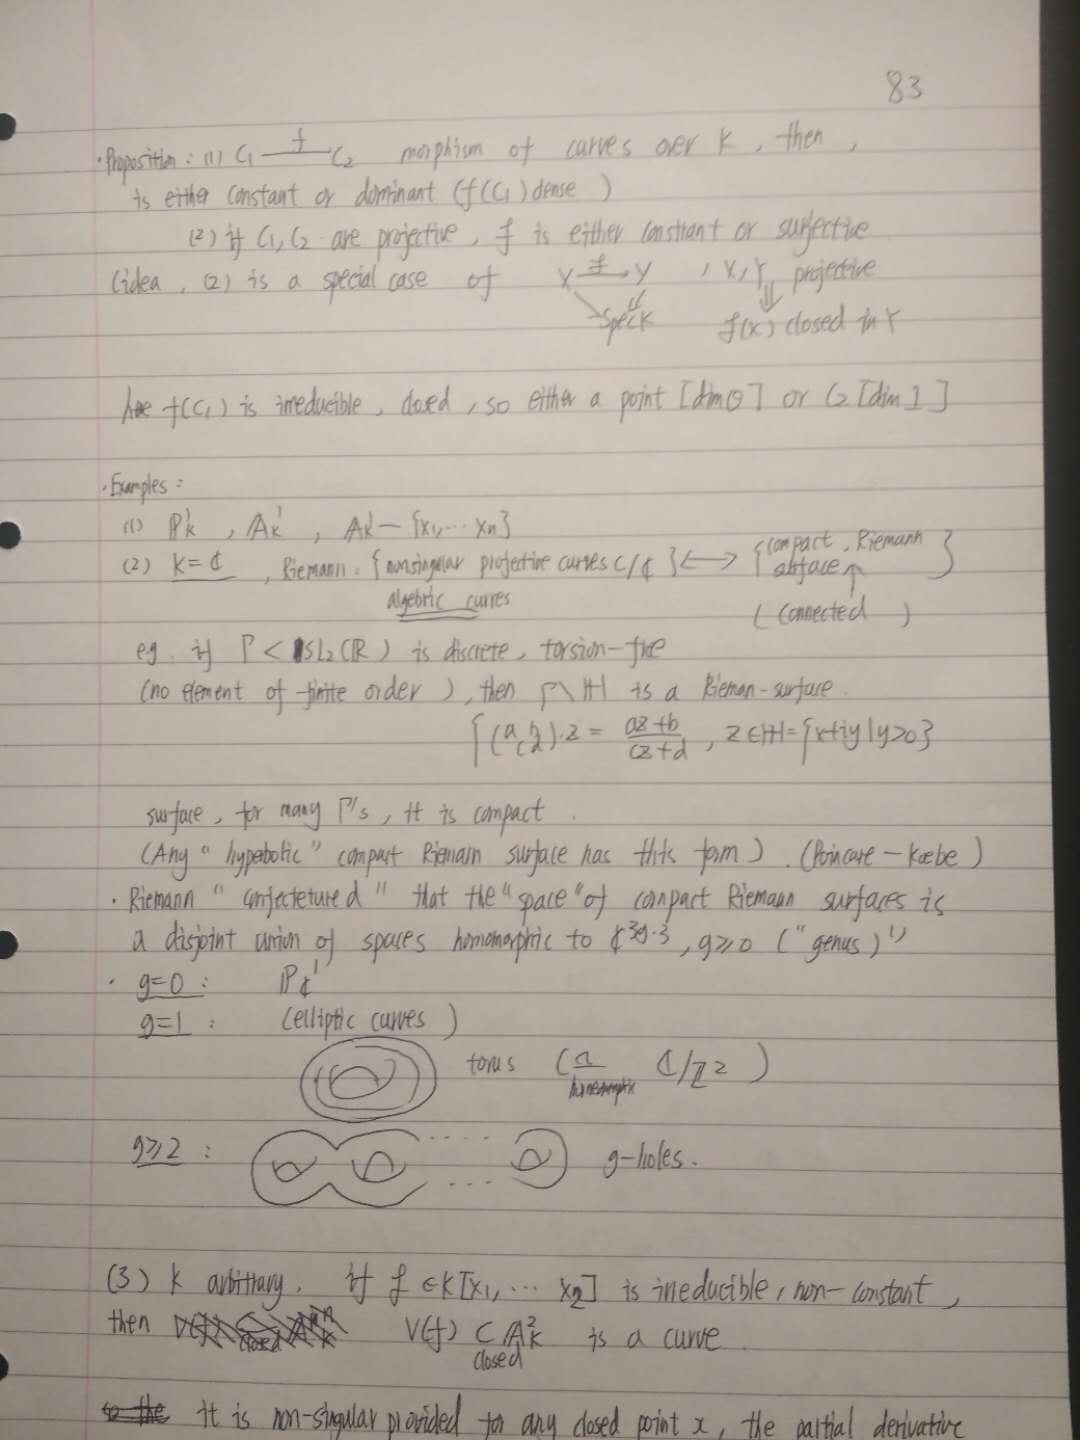 83
· Proposition : (1) C₁ —f— C₂ morphism of curves over k , then ,
is either constant or dominant (f(C₁) dense )
(2) if C₁, C₂ are projective, f is either constant or surjective
(idea , (2) is a special case of X —f→ Y , X, Y projective
Spec k ⇓ f(x) closed in Y
f(C₁) is irreducible, closed , so either a point [dim 0] or C₂ [dim 1]
· Examples :
(1) P¹k , A¹k , A¹k — {x₁, ⋯ xn}
(2) k = ℂ , Riemann : {nonsingular projective curves C/ℂ } ⟷ { compact , Riemann
surface }
algebric curves
( connected )
eg. if Γ < SL₂(ℝ) is discrete, torsion-free
(no element of finite order ), then Γ\ℍ is a Rieman-surface.
{ (a b c d)·z = az+b / cz+d , z∈ℍ = {x+iy | y>0}
surface, for many Γ's, it is compact .
(Any " hyperbolic " compact Riemann surface has this form ) . (Poincare – Koebe )
· Riemann " conjectetured " that the "space" of compact Riemann surfaces is
a disjoint union of spaces homomorphic to ℂ³ᵍ⁻³ , g⩾0 ("genus)")
· g=0 : P¹ℂ
g=1 : (elliptic curves )
torus ( ≅ ℂ/ℤ² )
homeomorphic
g⩾2 : ···· g-holes.
···
(3) k arbitrary. if f ∈ k[x₁, ⋯ x₂] is irreducible, non-constant ,
then V(f) ⊂ A²k is a curve .
closed
it is non-singular provided for any closed point x, the partial derivative